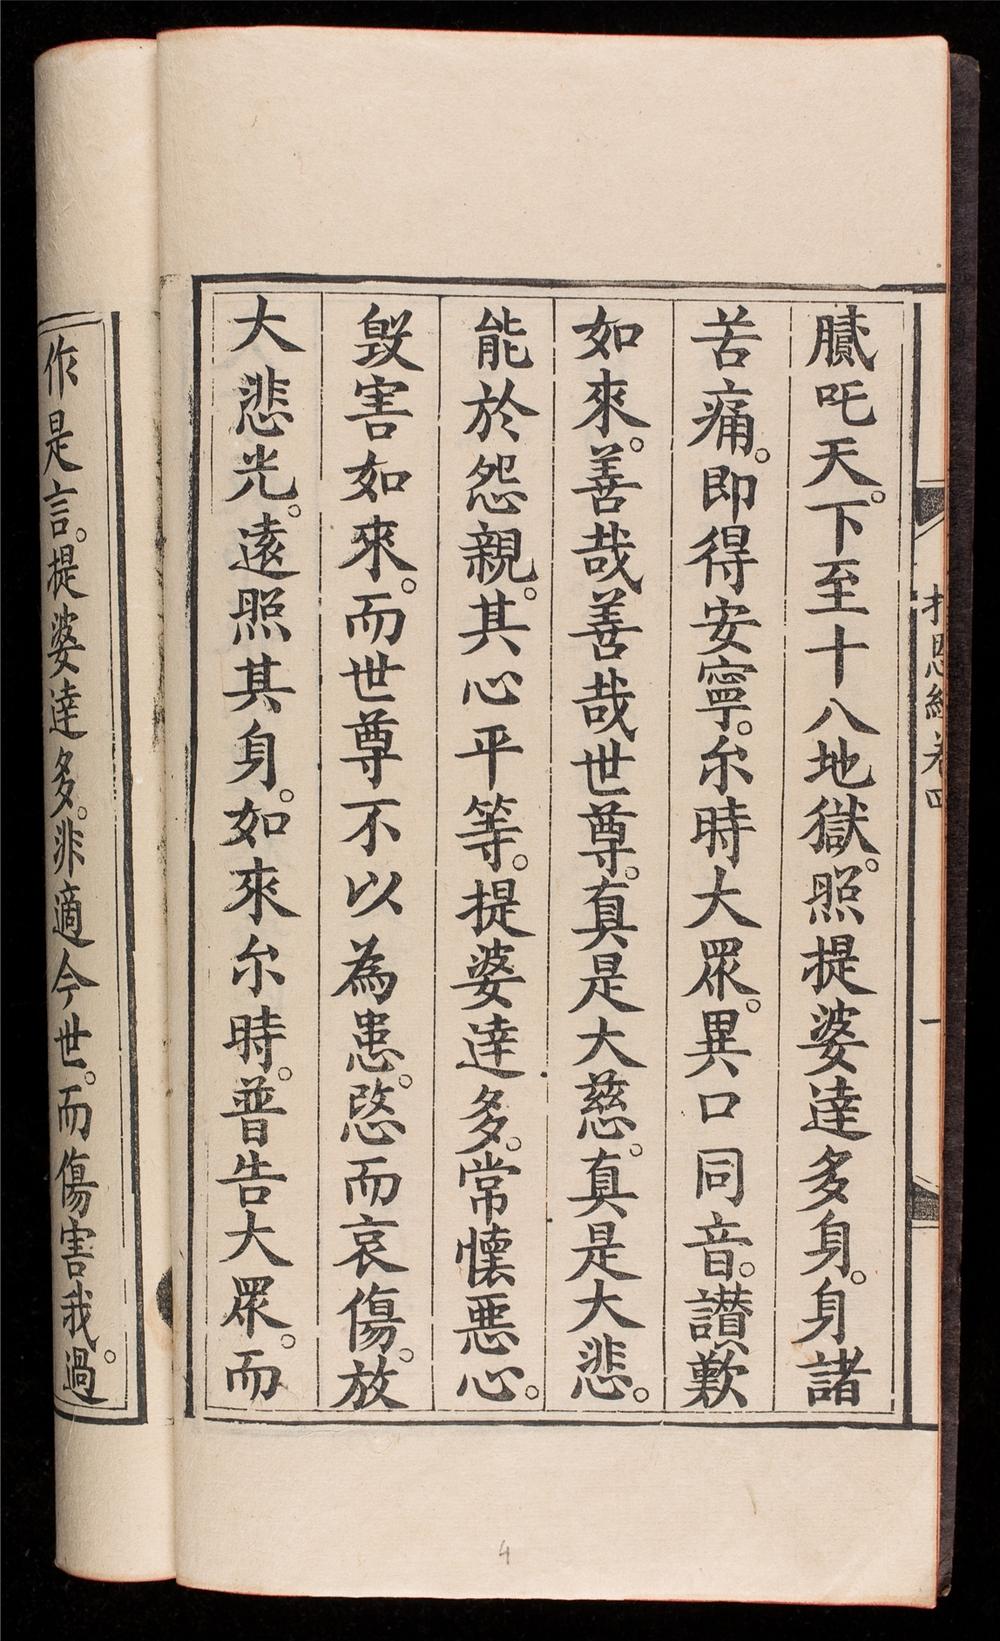 報恩經卷四 一
膩吒天。下至十八地獄。照提婆達多身。身諸
苦痛。即得安寧。尒時大眾。異口同音。讃歎
如來。善哉善哉世尊。真是大慈。真是大悲。
能於怨親。其心平等。提婆達多。常懷惡心。
毀害如來。而世尊不以為患。愍而哀傷。放
大悲光。遠照其身。如來尒時。普告大眾。而
作是言。提婆達多。非適今世。而傷害我。過
4